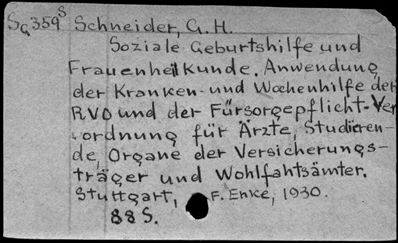 SG 359 S Schneider, G. H.
Soziale Geburtshilfe und
Frauenheilkunde. Anwendung
der Kranken- und Wochenhilfe der
RVO und der Fürsorgepflicht-Ver-
ordnung für Ärzte, Studieren-
de, Organe der Versicherungs-
träger und Wohlfahtsämter.
Stuttgart, F. Enke, 1930.
88 S.